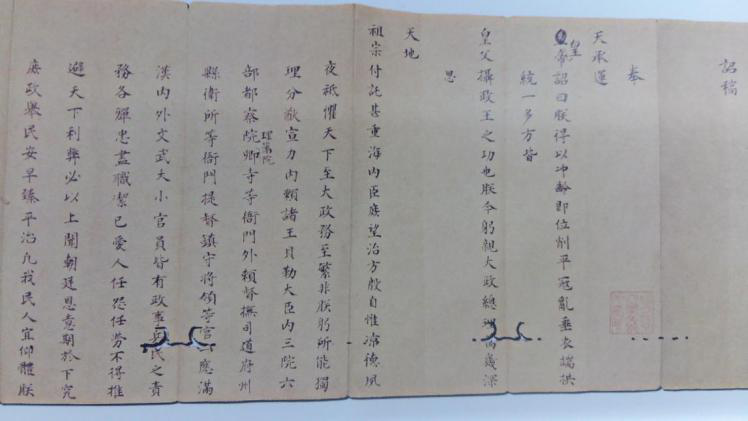 詔稿
奉
天承運
皇帝詔曰朕得以冲齡即位削平冦亂垂衣端拱
統一多方皆
皇父攝政王之功也朕今躬親大政總理萬幾深
思
天地
祖宗付託甚重海內臣庶望治方殷自惟凉德夙
夜祗懼天下至大政務至繁非朕躬所能獨
理分猷宣力內賴諸王貝勒大臣內三院六
部都察院理藩院卿寺等衙門外賴督撫司道府州
縣衛所等衙門提督鎮守將領等官一應滿
漢內外文武大小官員皆有政事兵民之責
務各殫忠盡職潔己愛人任怨任勞不得推
避天下利弊必以上聞朝廷恩意期於下究
庶政舉民安早臻平治凡我民人宜仰體朕